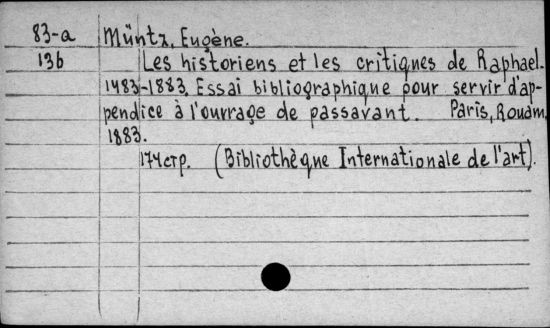 83-a Müntz, Eugène.
136 Les historiens et les critiques de Raphael.
1483-1883. Essai bibliographique pour servir d'ap-
pendice à l'ouvrage de passavant. Paris, Rouam,
1883.
174 стр. (Bibliothèque Internationale de l'art).